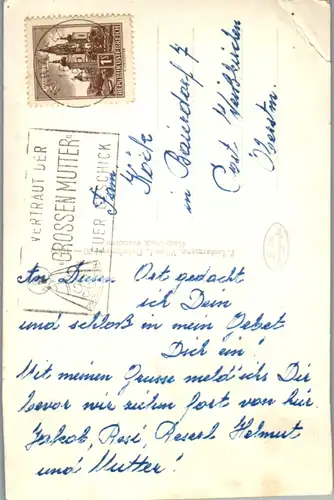 REPUBLIK ÖSTERREICH
VERTRAUT DER
"GROSSEN MUTTER"
EUER SCHICK
Fam.
Köck
in Baierdorf 7
Post
An Diesen Ort gedacht
ich Dein
und schloß in mein Gebet
Dich ein!
Mit meinen Grusse meld' ichs Dir
bevor wir ziehn fort von hir.
Jakob, Resi, Reserl Helmut
und Mutter!